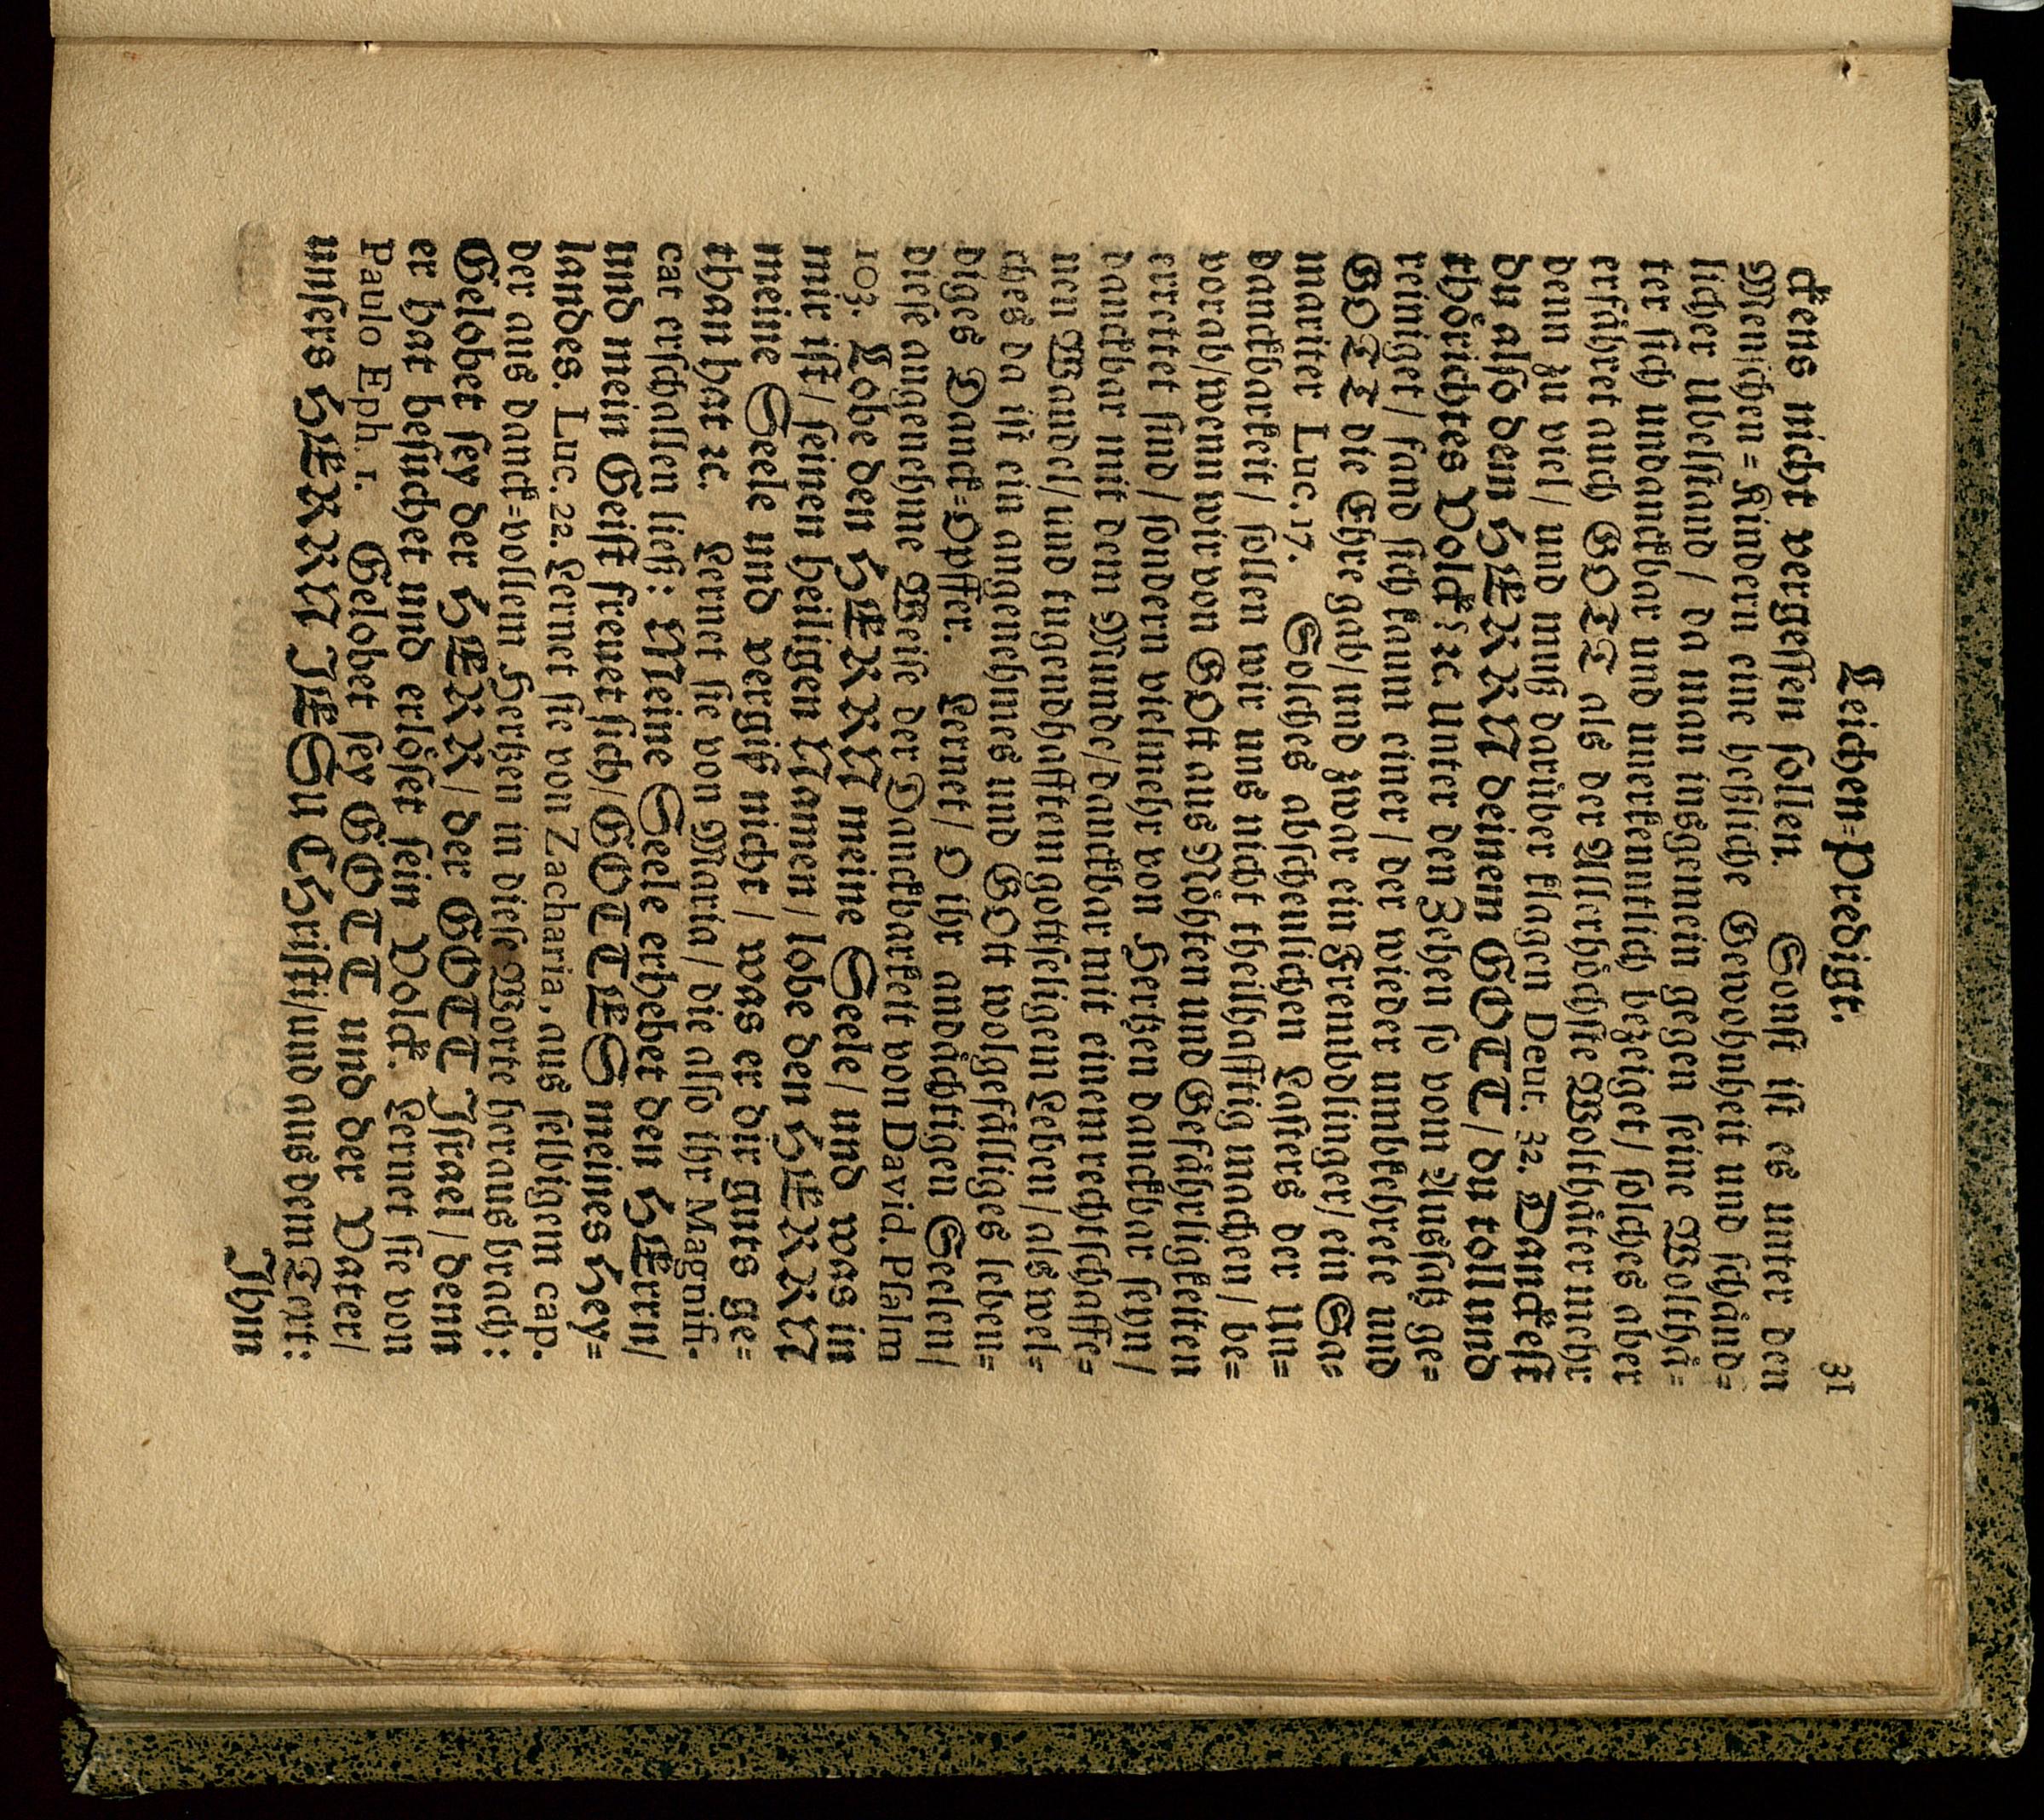 Leichen=Predigt. 31
ckens nicht vergessen sollen. Sonst ist es unter den
Menschen=Kindern eine heßliche Gewohnheit und schänd=
licher Ubelstand / da man insgemein gegen seine Wolthä=
ter sich undanckbar und unerkenntlich bezeiget / solches aber
erfähret auch GOTT als der Allerhöchste Wolthäter mehr
denn zu viel / und muß darüber klagen Deut. 32. Danckest
du also dem HERRN deinem GOTT / du toll und
thörichtes Volck? ꝛc. Unter den Zehen so vom Aussatz ge=
reiniget / fand sich kaum einer / der wieder umbkehrete und
GOTT die Ehre gab / und zwar ein Frembdlinger / ein Sa=
mariter Luc. 17. Solches abscheulichen Lasters der Un=
danckbarkeit / sollen wir uns nicht theilhafftig machen / be=
vorab / wenn wir von GOtt aus Nöhten und Gefährligkeiten
errettet sind / sondern vielmehr von Hertzen danckbar seyn /
danckbar mit dem Munde / danckbar mit einem rechtschaffe=
nen Wandel / und tugendhafftem gottseligem Leben / als wel=
ches da ist ein angenehmes und GOtt wolgefälliges leben=
diges Danck=Opffer. Lernet / O ihr andächtigen Seelen /
diese angenehme Weise der Danckbarkeit von David. Psalm
103. Lobe den HERRN meine Seele / und was in
mir ist / seinen heiligen Namen / lobe den HERRN
meine Seele und vergiß nicht / was er dir guts ge=
than hat ꝛc. Lernet sie von Maria / die also ihr Magnifi-
cat erschallen ließ: Meine Seele erhebet den HErrn /
und mein Geist freuet sich / GOTTES meines Hey=
landes. Luc. 22. Lernet sie von Zacharia, aus selbigem cap.
der aus danck=vollem Hertzen in diese Worte heraus brach:
Gelobet sey der HERR / der GOTT Israel / denn
er hat besuchet und erlöset sein Volck. Lernet sie von
Paulo Eph. 1. Gelobet sey GOTT und der Vater /
unsers HERRN JESu Christi / und aus dem Text:
Ihm